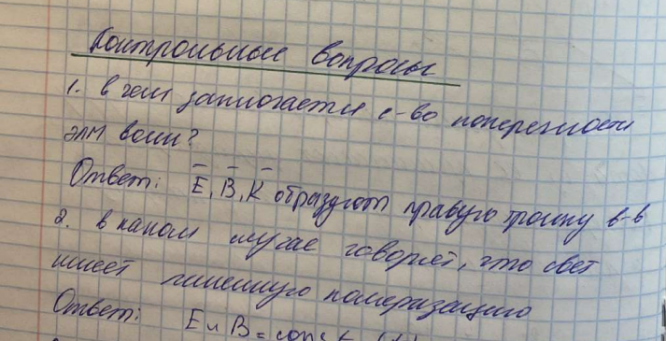 Контрольные вопросы
1. в чем заключается с-во поперечности
элм волн?
Ответ: E, B, K образуют правую тройку в-в
2. в каком случае говорят, что свет
имеет линейную поляризацию
Ответ: E и B = const